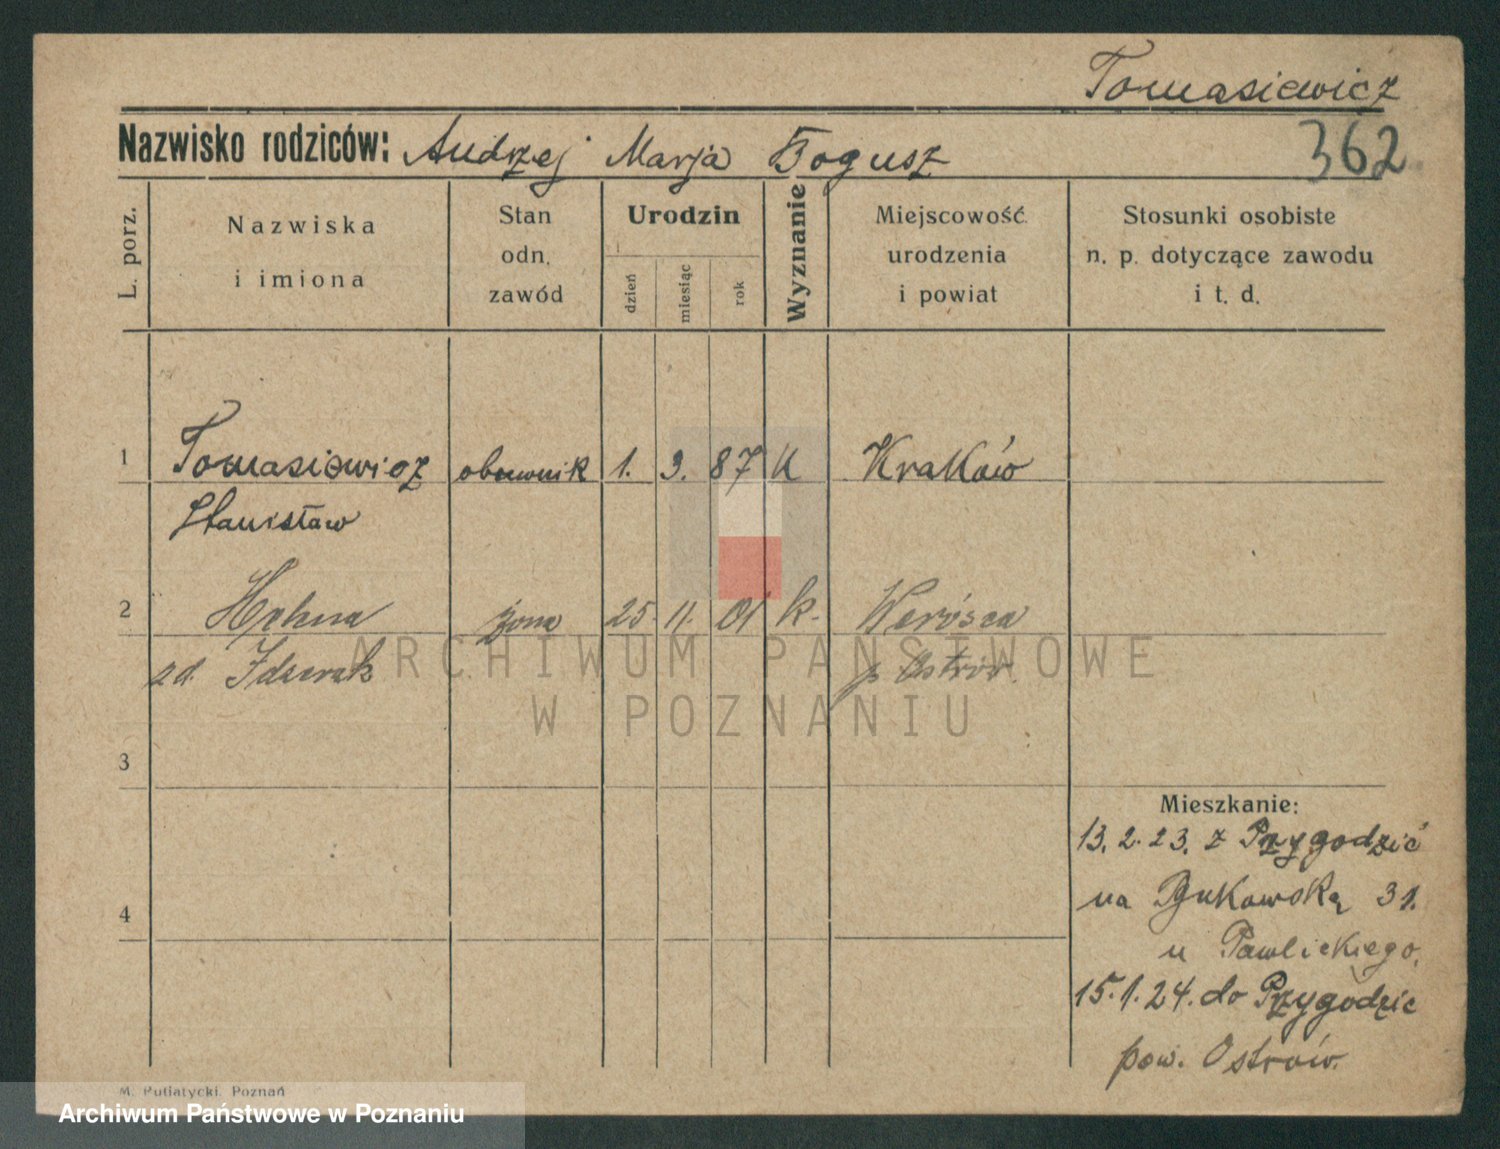 Tomasiewicz
Nazwisko rodziców: Andrzej Marja Bogusz
362
L. porz.
Nazwiska
i imiona
Stan
odn.
zawód
Urodzin
dzień
miesiąc
rok
Wyznanie
Miejscowość
urodzenia
i powiat
Stosunki osobiste
n. p. dotyczące zawodu
i t. d.
1 Tomasiewicz obuwnik 1. 3. 87 K Kraków
Stanisław
2 żona 25. 11. 01 k.
zd. p. Ostrów.
3
4
Mieszkanie:
13. 2. 23. z Przygodzic
na Bukowską 31.
u Pawlickiego.
15. 1. 24. do Przygodzic
pow. Ostrów.
M. Putiatycki, Poznań
ARCHIWUM PAŃSTWOWE
W POZNANIU
Archiwum Państwowe w Poznaniu